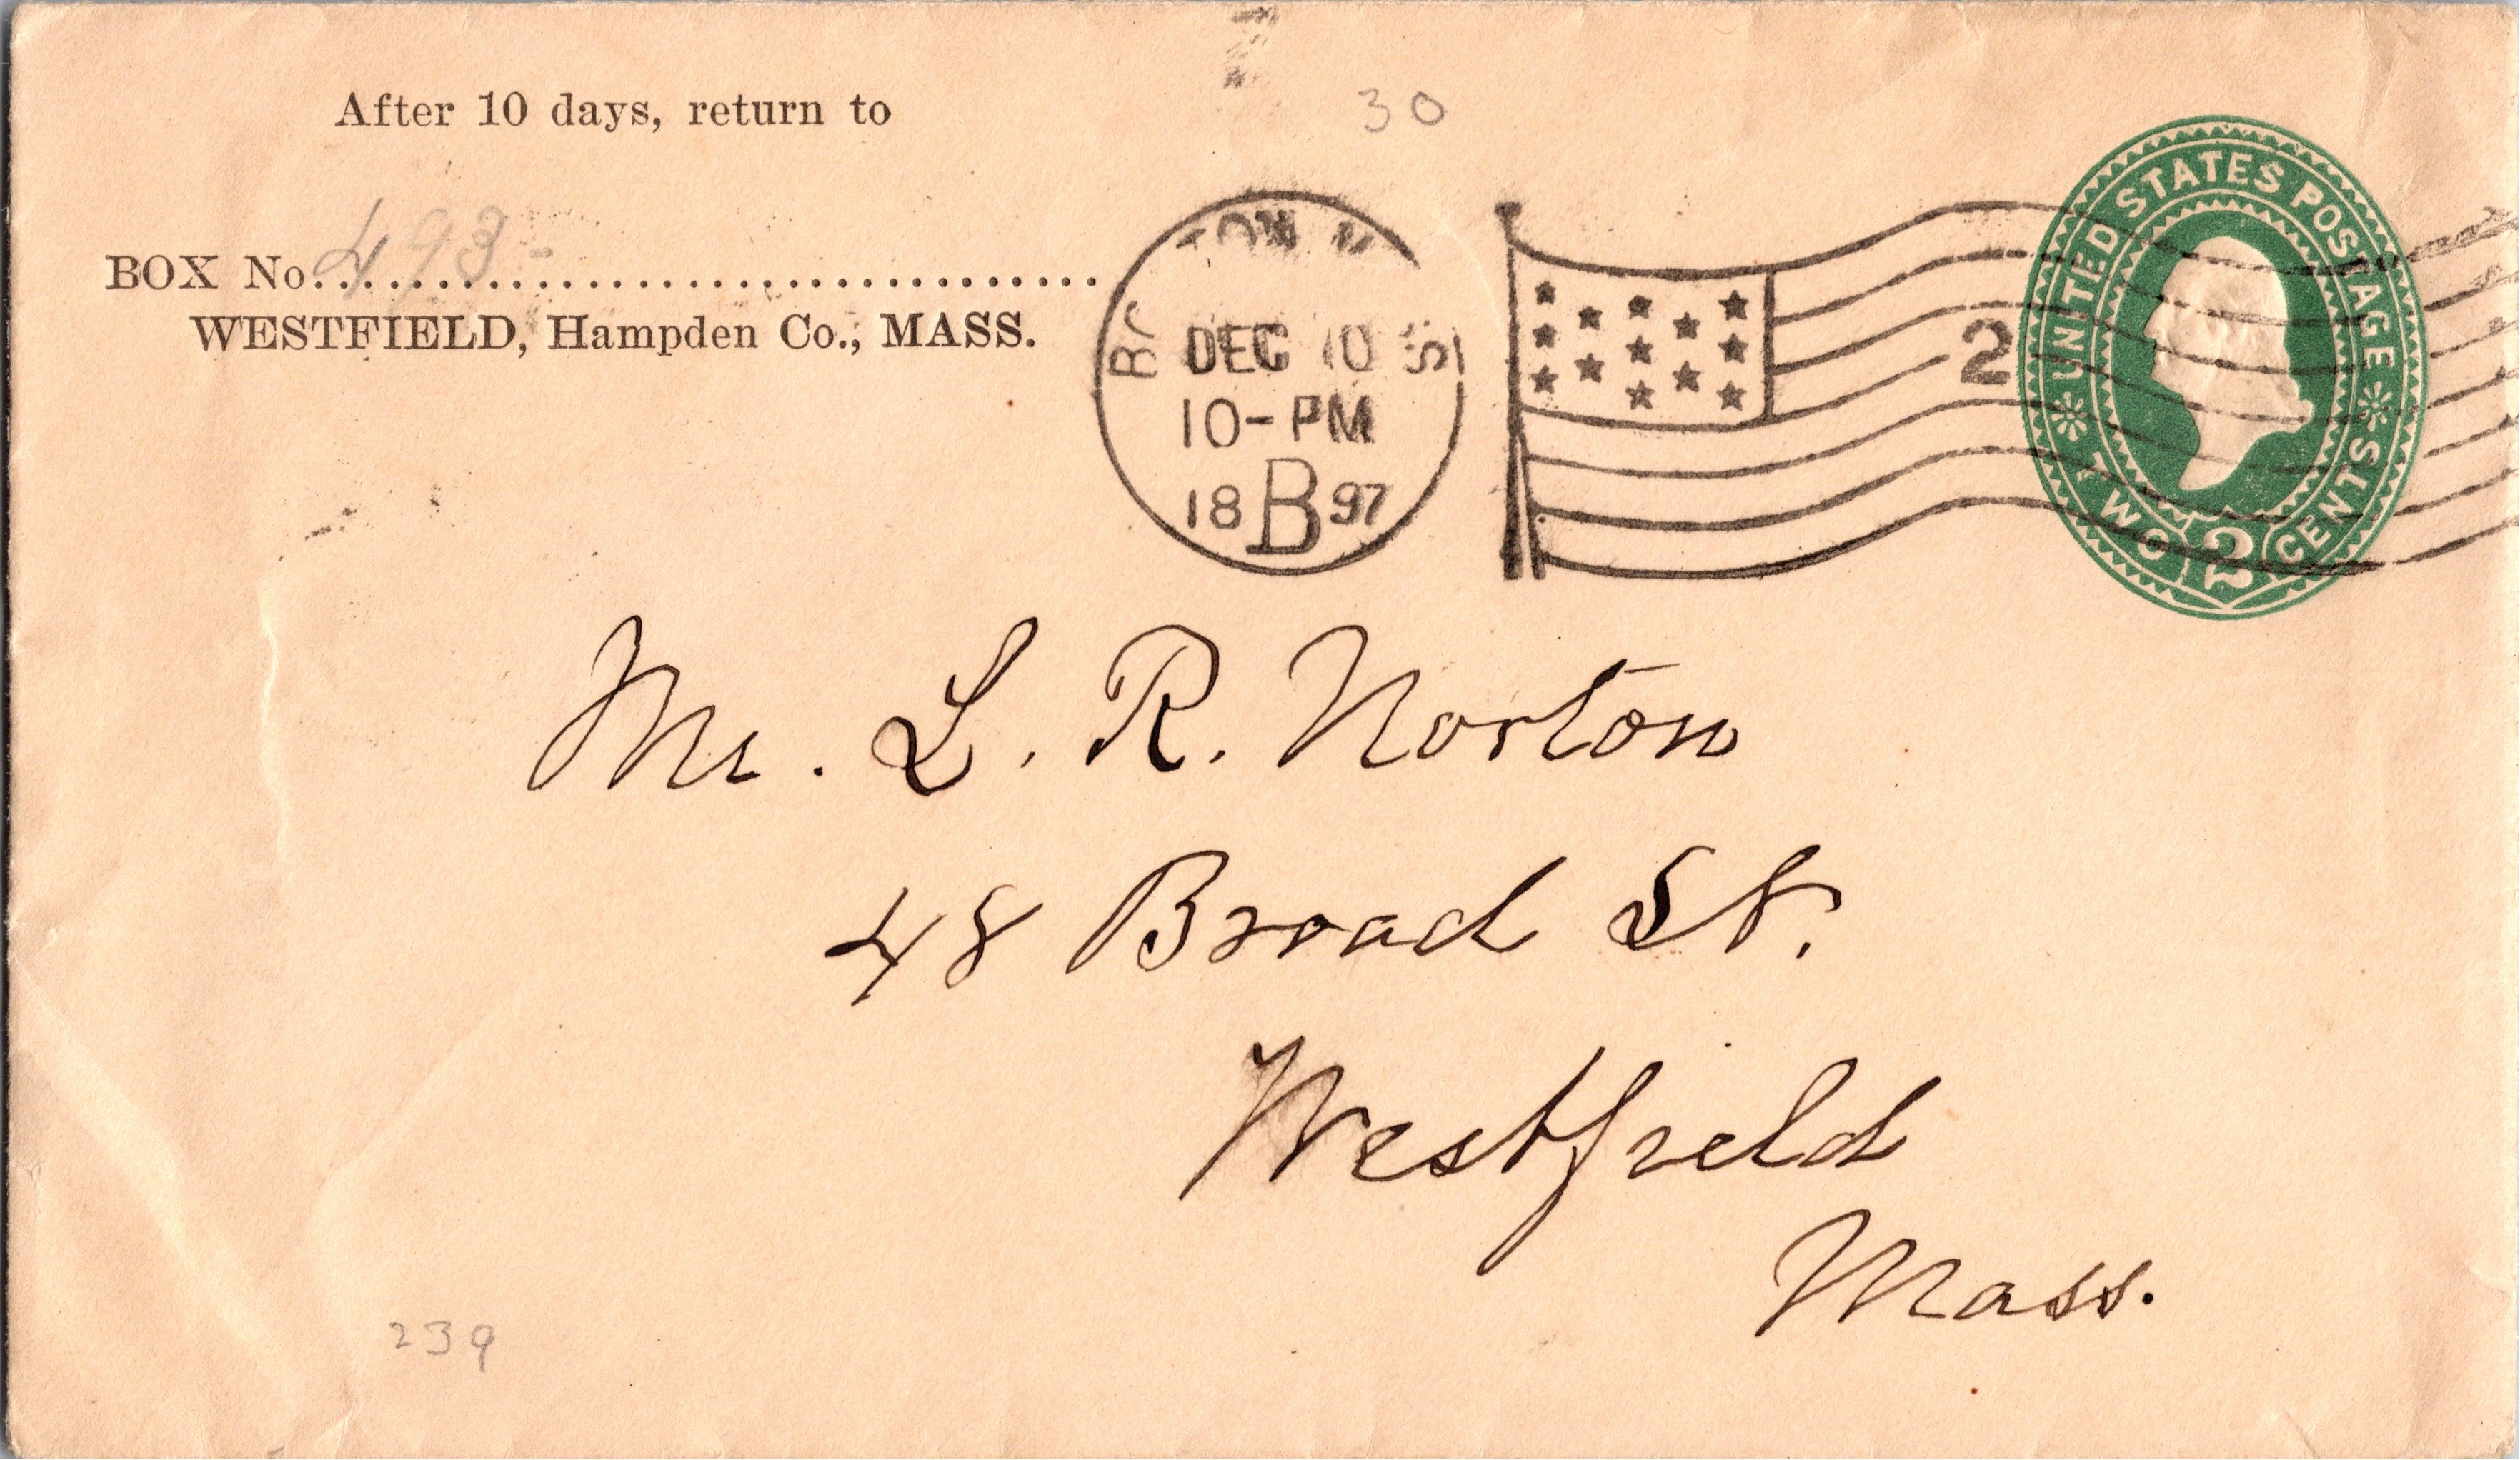 After 10 days, return to
30
BOX No. 493-
WESTFIELD, Hampden Co., MASS.
DEC 10
10-PM
18 B 97
2
UNITED STATES POSTAGE
TWO 2 CENTS
Mr. L. R. Norton
48 Broad St.
Westfield
Mass.
239